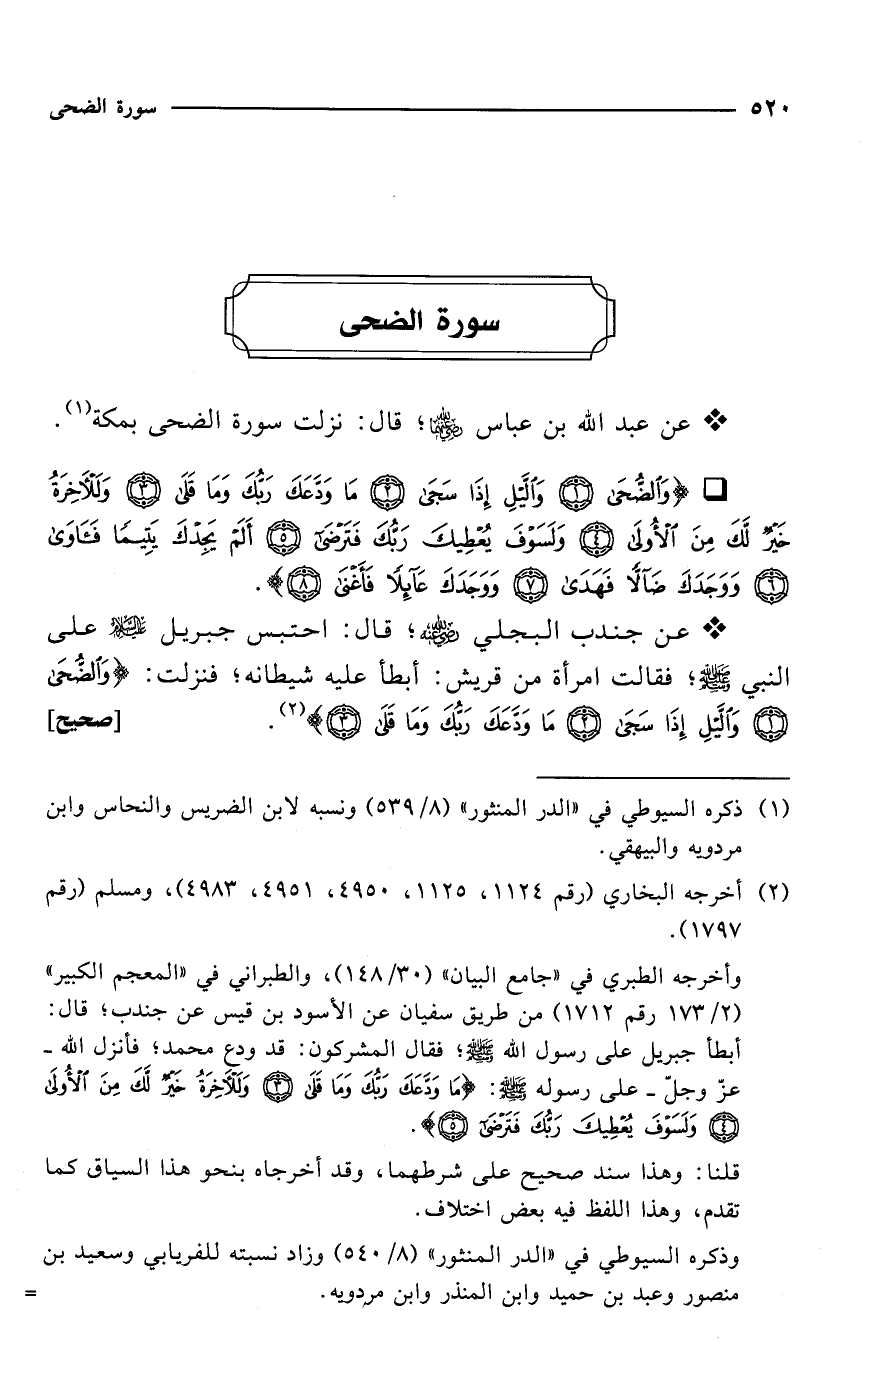 ٥٢٠ سورة الضحى
سورة الضحى
❖ عن عبد الله بن عباس رضي الله عنهما؛ قال: نزلت سورة الضحى بمكة(١).
❑ ﴿وَٱلضُّحَىٰ ١ وَٱلَّيْلِ إِذَا سَجَىٰ ٢ مَا وَدَّعَكَ رَبُّكَ وَمَا قَلَىٰ ٣ وَلَلْآخِرَةُ
خَيْرٌ لَّكَ مِنَ ٱلْأُولَىٰ ٤ وَلَسَوْفَ يُعْطِيكَ رَبُّكَ فَتَرْضَىٰٓ ٥ أَلَمْ يَجِدْكَ يَتِيمًا فَـَٔاوَىٰ
٦ وَوَجَدَكَ ضَآلًّا فَهَدَىٰ ٧ وَوَجَدَكَ عَآئِلًا فَأَغْنَىٰ ٨﴾.
❖ عن جندب البجلي رضي الله عنه؛ قال: احتبس جبريل عليه السلام على
النبي ﷺ؛ فقالت امرأة من قريش: أبطأ عليه شيطانه؛ فنزلت: ﴿وَٱلضُّحَىٰ
١ وَٱلَّيْلِ إِذَا سَجَىٰ ٢ مَا وَدَّعَكَ رَبُّكَ وَمَا قَلَىٰ ٣﴾(٢). [صحيح]
(١) ذكره السيوطي في «الدر المنثور» (٥٣٩/٨) ونسبه لابن الضريس والنحاس وابن
مردويه والبيهقي.
(٢) أخرجه البخاري (رقم ١١٢٤، ١١٢٥، ٤٩٥٠، ٤٩٥١، ٤٩٨٣)، ومسلم (رقم
١٧٩٧).
وأخرجه الطبري في «جامع البيان» (١٤٨/٣٠)، والطبراني في «المعجم الكبير»
(١٧٣/٢ رقم ١٧١٢) من طريق سفيان عن الأسود بن قيس عن جندب؛ قال:
أبطأ جبريل على رسول الله ﷺ؛ فقال المشركون: قد ودع محمد؛ فأنزل الله ـ
عزّ وجلّ ـ على رسوله ﷺ: ﴿مَا وَدَّعَكَ رَبُّكَ وَمَا قَلَىٰ ٣ وَلَلْآخِرَةُ خَيْرٌ لَّكَ مِنَ ٱلْأُولَىٰ
٤ وَلَسَوْفَ يُعْطِيكَ رَبُّكَ فَتَرْضَىٰٓ ٥﴾.
قلنا: وهذا سند صحيح على شرطهما، وقد أخرجاه بنحو هذا السياق كما
تقدم، وهذا اللفظ فيه بعض اختلاف.
وذكره السيوطي في «الدر المنثور» (٥٤٠/٨) وزاد نسبته للفريابي وسعيد بن
منصور وعبد بن حميد وابن المنذر وابن مردويه. =